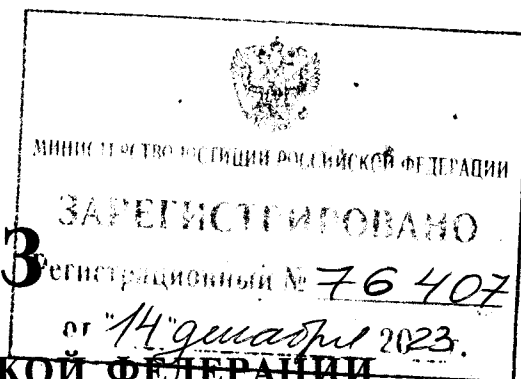 МИНИСТЕРСТВО ЮСТИЦИИ РОССИЙСКОЙ ФЕДЕРАЦИИ
ЗАРЕГИСТРИРОВАНО
З
Регистрационный № 76407
от "14" декабря 2023.
КОЙ ФЕДЕРАЦИИ